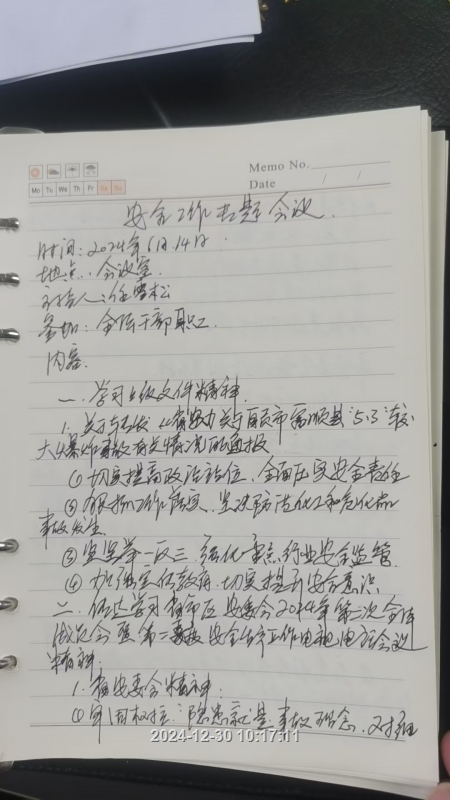 Memo No.
Mo Tu We Th Fr Sa Su
Date / /
安全工作专题会议.
时间:2024年6月14日.
地点:会议室
主持人:任雪松
参加:全体干部职工
内容:
一、学习上级文件精神.
1.关于转发《省安办关于自贡市富顺县"5.3"较
大爆炸事故有关情况的通报
①切实提高政治站位,全面压实安全责任
②狠抓工作落实,坚决防范化工和危化品
事故发生.
③坚持举一反三,强化重点行业安全监管
④加强宣传教育,切实提升安全意识
二、传达学习省市区安委会2024年第二次全体
会暨第二季度安全生产工作电视电话会议
精神.
1.省安委会精神:
①牢固树立"隐患就是事故"理念.
2024-12-30 10:17:11